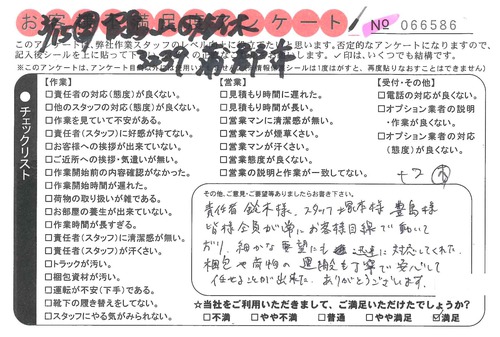 お客様満足度アンケート
№ 066586
このアンケートは、弊社作業スタッフのレベル向上に役立てたいと思います。否定的なアンケートになりますので、
※このアンケートは、
【作業】
□責任者の対応(態度)が良くない。
□他のスタッフの対応(態度)が良くない。
□作業を見ていて不安がある。
□責任者(スタッフ)に好感が持てない。
□お客様への挨拶が出来ていない。
□ご近所への挨拶・気遣いが無い。
□作業開始前の内容確認がなかった。
□作業開始時間が遅れた。
□荷物の取り扱いが雑である。
□お部屋の養生が出来ていない。
□作業時間が長すぎる。
□責任者(スタッフ)に清潔感が無い。
□責任者(スタッフ)が汗くさい。
□トラックが汚い。
□梱包資材が汚い。
□運転が不安(下手)である。
□靴下の履き替えをしてない。
□スタッフにやる気がみられない。
【営業】
□見積もり時間に遅れた。
□見積もり時間が長い。
□営業マンに清潔感が無い。
□営業マンが煙草くさい。
□営業マンが汗くさい。
□営業態度が良くない。
□営業の説明と作業が一致してない。
【受付・その他】
□電話の対応が良くない。
□オプション業者の説明
・作業が良くない。
□オプション業者の対応
(態度)が良くない。
●チェックリスト
その他、ご意見・ご要望等ありましたらお書き下さい。
責任者 鈴木様、スタッフ 塚本様 豊島様
皆様全員が常にお客様目線で動いて
おり、細かな要望にも迅速に対応してくれた。
梱包や荷物の運搬も丁寧で安心して
任せることが出来た。ありがとうございます。
☆当社をご利用いただきまして、ご満足いただけたでしょうか?
□不満 □やや不満 □普通 □やや満足 ☑満足